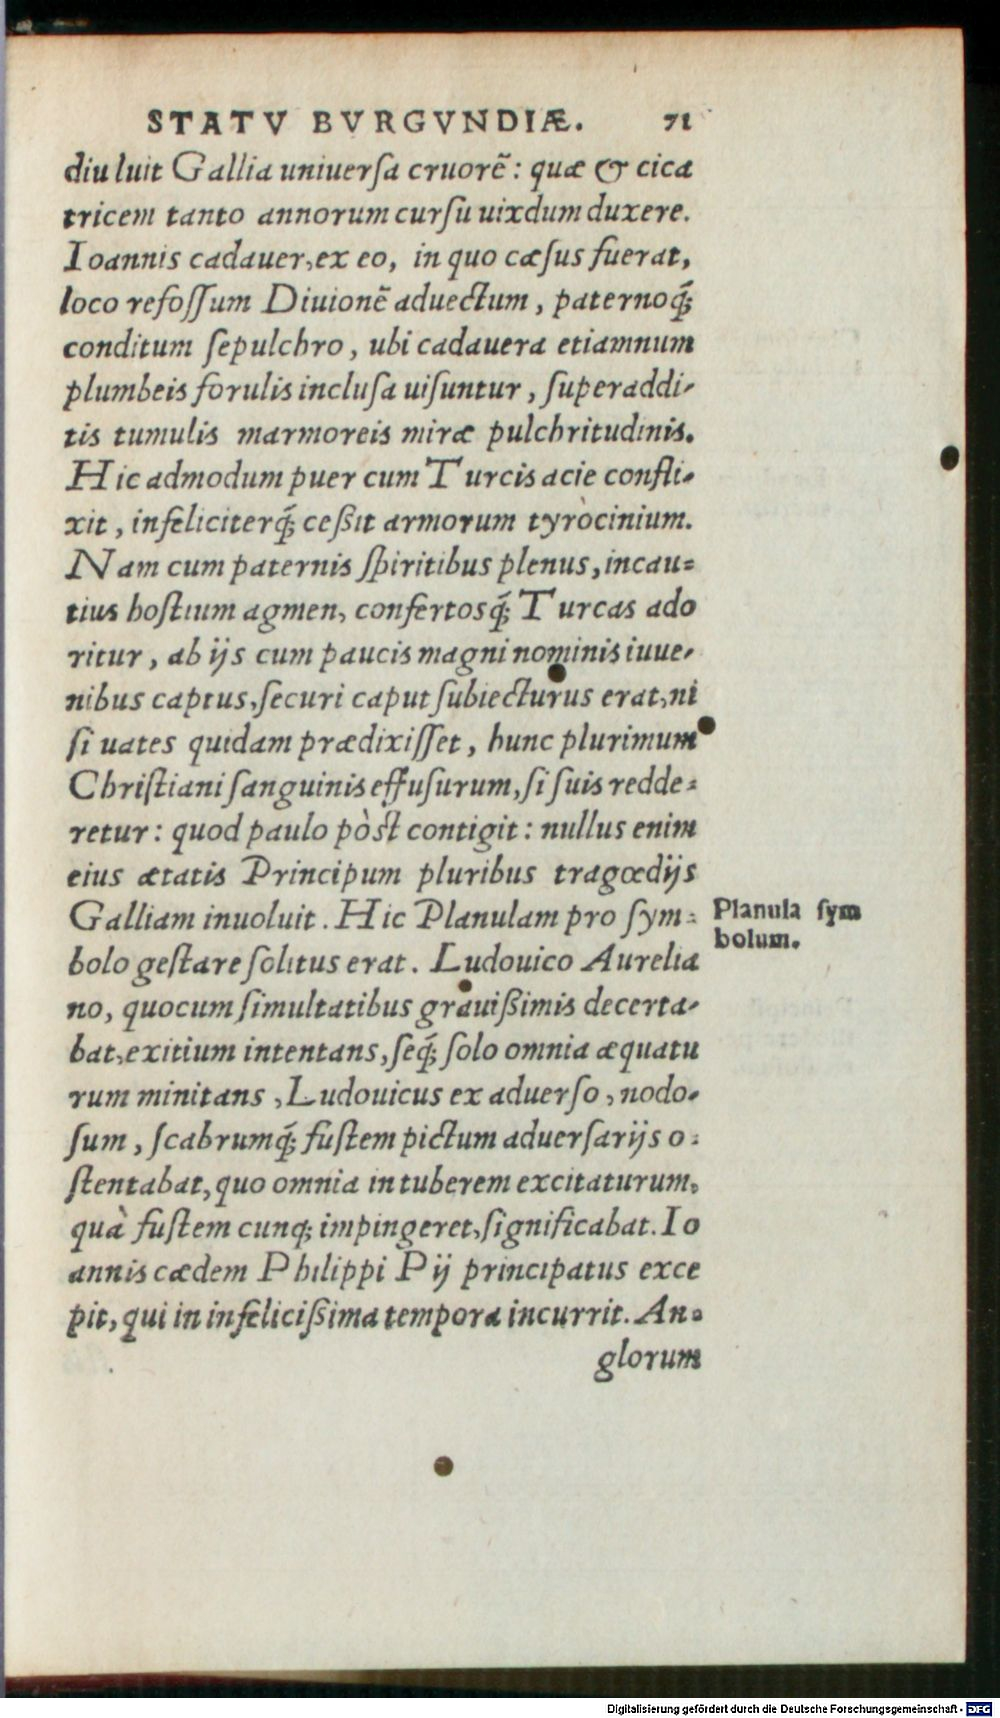 STATV BVRGVNDIÆ. 71
diu luit Gallia uniuerſa cruorẽ: quæ & cica
tricem tanto annorum curſu uixdum duxere.
Ioannis cadauer, ex eo, in quo cæſus fuerat,
loco refoſſum Diuionẽ aduectum, paternoq́;
conditum ſepulchro, ubi cadauera etiamnum
plumbeis forulis incluſa uiſuntur, ſuperaddi-
tis tumulis marmoreis miræ pulchritudinis.
Hic admodum puer cum Turcis acie confli-
xit, infeliciterq́; ceßit armorum tyròcinium.
Nam cum paternis ſpiritibus plenus, incau-
tius hoſtium agmen, confertosq́; Turcas ado
ritur, ab ijs cum paucis magni nominis iuue-
nibus captus, ſecuri caput ſubiecturus erat, ni
ſi uates quidam prædixiſſet, hunc plurimum
Chriſtiani ſanguinis effuſurum, ſi ſuis redde-
retur: quod paulo pòſt contigit: nullus enim
eius ætatis Principum pluribus tragœdijs
Galliam inuoluit. Hic Planulam pro ſym-
bolo geſtare ſolitus erat. Ludouico Aurelia
no, quocum ſimultatibus grauißimis decerta-
bat, exitium intentans, ſeq́; ſolo omnia æquatu
rum minitans, Ludouicus ex aduerſo, nodo-
ſum, ſcabrumq́; fuſtem pictum aduerſarijs o-
ſtentabat, quo omnia in tuberem excitaturum,
quà fuſtem cunq; impingeret, ſignificabat. Io
annis cædem Philippi Pij principatus exce
pit, qui in infelicißima tempora incurrit. An-
glorum
Planula ſym
bolum.
Digitalisierung gefördert durch die Deutsche Forschungsgemeinschaft - DFG